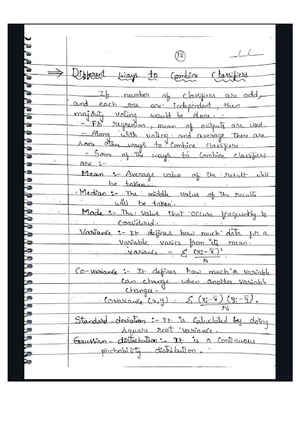 17
⇒ Different ways to Combine Classifiers
If number of classifiers are odd,
and each one are independent, then
majority voting would be done.
- For regression, mean of outputs are used.
- Along with voting and average there are
some other ways to combine classifiers.
- Some of the ways to combine classifiers
are :-
Mean :- Average value of the result will
be taken.
Median :- The middle value of the results
will be taken.
Mode :- The value that occur frequently is
considered.
Variance :- It defines how much data for a
variable varies from its mean.
Variance = Σ (xi - x̄)²
N
Co-variance :- It defines how much a variable
can change when another variable
changes.
Covariance (x,y) = Σ (xi - x̄) (yi - ȳ).
N
Standard-deviation :- It is calculated by doing
square root variance.
Gaussian - distribution :- It is a continuous
probability distribution.